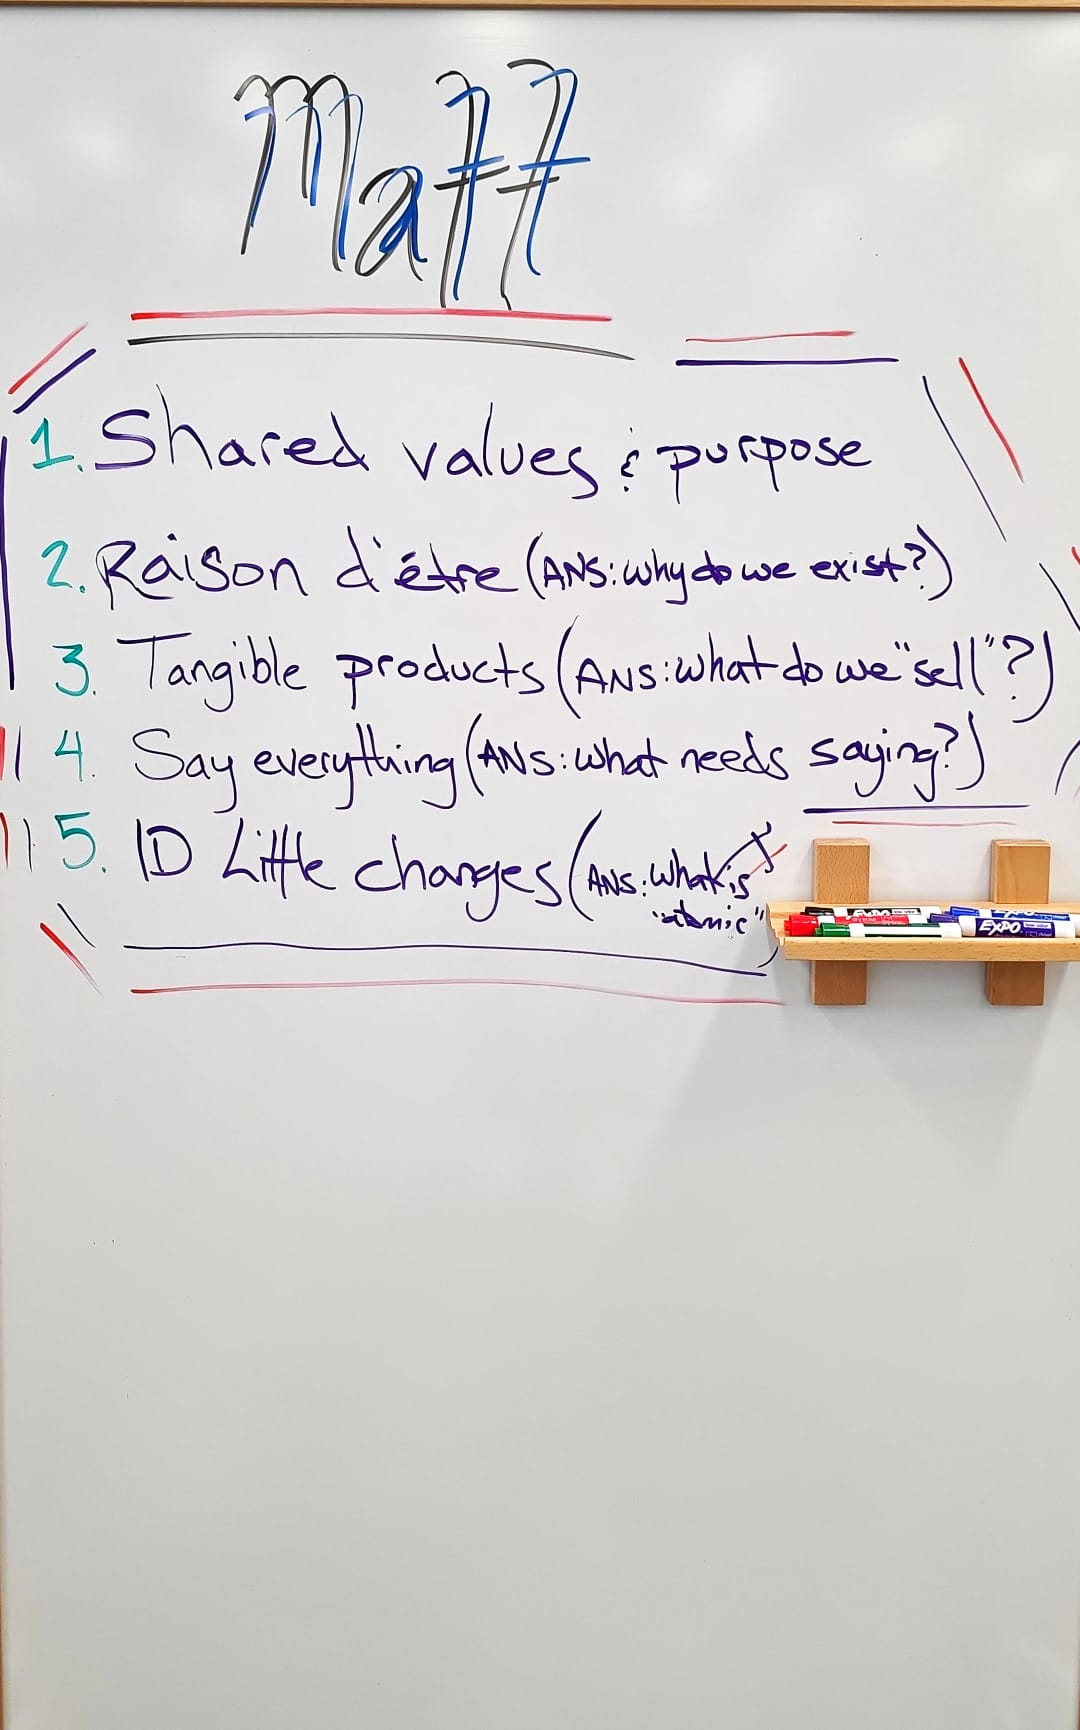 Matt
1. Shared values & purpose
2. Raison d'être (ANS: why do we exist?)
3. Tangible products (ANS: what do we "sell"?)
4. Say everything (ANS: what needs saying?)
5. ID Little changes (ANS: what is
"atomic"
EXPO
EXPO